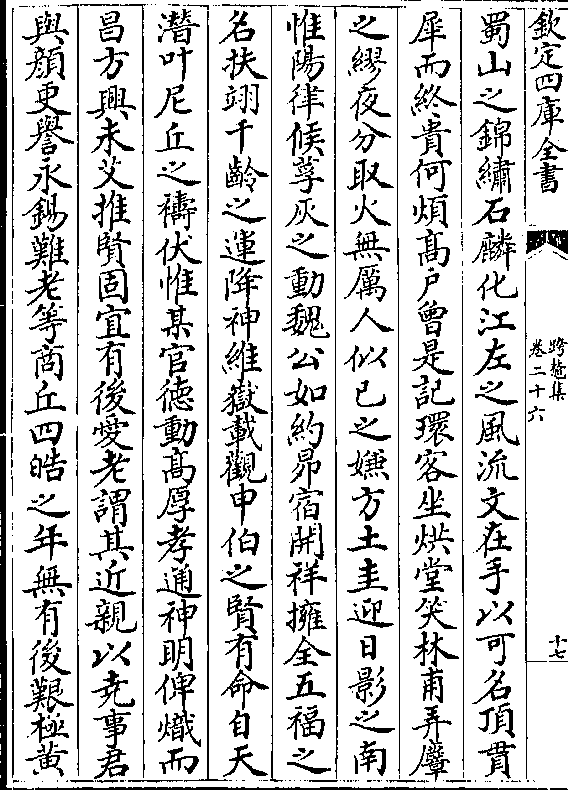 欽定四庫全書
跨鼇集
卷二十六
十七
蜀山之錦繡石麟化江左之風流文在手以可名頂貫
犀而終貴何煩髙戸曾是記環客坐烘堂笑林甫弄麞
之繆夜分取火無厲人似已之嫌方土圭迎日影之南
惟陽律候莩灰之動魏公如約昴宿開祥擁全五福之
名扶翊千齡之運降神維嶽載觀申伯之賢有命自天
濳叶尼丘之禱伏惟某官德動髙厚孝通神明俾熾而
昌方興未艾推賢固宜有後愛老謂其近親以堯事君
與顔更譽永錫難老等商丘四皓之年無有後艱極黄